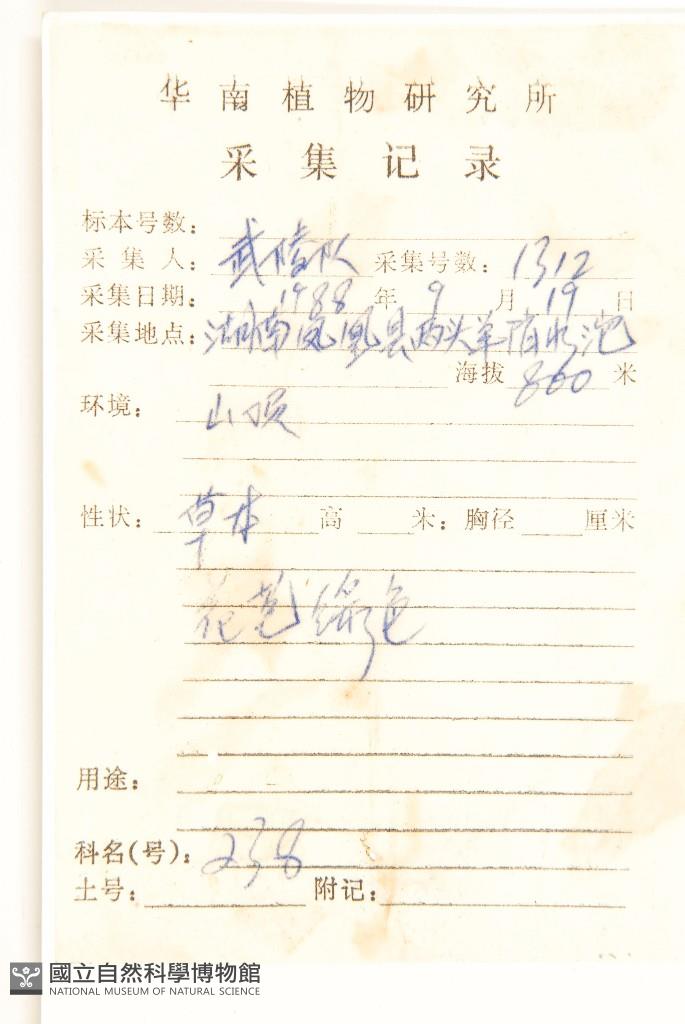 华南植物研究所
采集记录
标本号数:
采集人: 武陵队 采集号数: 1312
采集日期: 1988 年 9 月 19 日
采集地点: 湖南凤凰县两头羊
海拔 860 米
环境: 山顶
性状: 草本 高 米: 胸径 厘米
花苞绿色
用途:
科名(号): 238
土号: 附记:
國立自然科學博物館
NATIONAL MUSEUM OF NATURAL SCIENCE